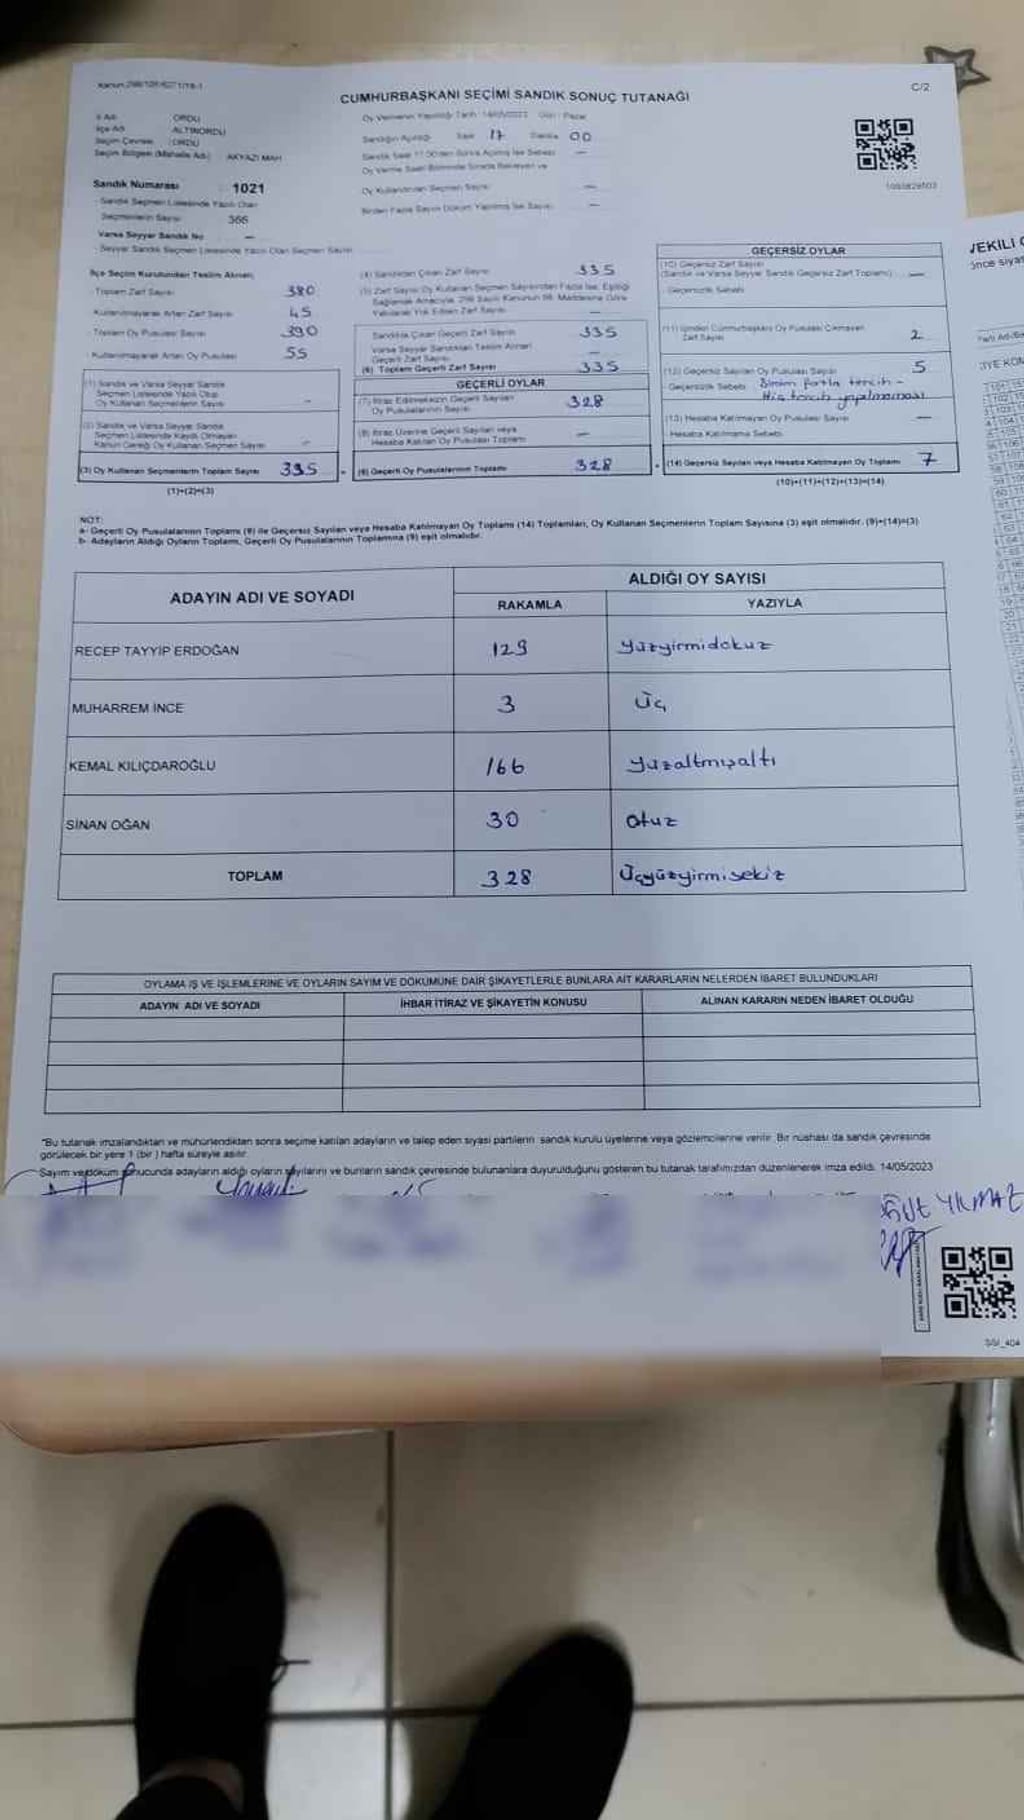 CUMHURBAŞKANI SEÇİMİ SANDIK SONUÇ TUTANAĞI
C/2
İl Adı ORDU
İlçe Adı ALTINORDU
Seçim Çevresi ORDU
Seçim Bölgesi (Mahalle Adı) AKYAZI MAH
Oy Vermenin Yapıldığı Tarih 14/05/2023 Gün Pazar
Sandığın Açıldığı Saat 17 Dakika 00
Sandık Numarası 1021
Sandık Seçmen Listesinde Yazılı Olan
Seçmenlerin Sayısı 366
Varsa Seyyar Sandık No —
Seyyar Sandık Seçmen Listesinde Yazılı Olan Seçmen Sayısı
Oy Kullandırılan Seçmen Sayısı —
Birden Fazla Sayım Döküm Yapılmış İse Sayısı —
İlçe Seçim Kurulundan Teslim Alınan
Toplam Zarf Sayısı 380
Kullanılmayarak Artan Zarf Sayısı 45
Toplam Oy Pusulası Sayısı 390
Kullanılmayarak Artan Oy Pusulası 55
(1) Sandık ve Varsa Seyyar Sandık
Seçmen Listesinde Yazılı Olup
Oy Kullanan Seçmenlerin Sayısı -
(2) Sandık ve Varsa Seyyar Sandık
Seçmen Listesinde Kaydı Olmayan
Kanun Gereği Oy Kullanan Seçmen Sayısı -
(3) Oy Kullanan Seçmenlerin Toplam Sayısı 335
(1)+(2)=(3)
(4) Sandıktan Çıkan Zarf Sayısı 335
Sandıkta Çıkan Geçerli Zarf Sayısı 335
Varsa Seyyar Sandıktan Teslim Alınan
Geçerli Zarf Sayısı —
(6) Toplam Geçerli Zarf Sayısı 335
GEÇERLİ OYLAR
(7) İtiraz Edilmeksizin Geçerli Sayılan
Oy Pusulalarının Sayısı 328
(8) İtiraz Üzerine Geçerli Sayılan veya
Hesaba Katılan Oy Pusulası Toplamı —
(9) Geçerli Oy Pusulalarının Toplamı 328
GEÇERSİZ OYLAR
(10) Geçersiz Zarf Sayısı
(Sandık ve Varsa Seyyar Sandık Geçersiz Zarf Toplamı) —
Geçersizlik Sebebi
(11) İçinden Cumhurbaşkanı Oy Pusulası Çıkmayan
Zarf Sayısı 2
(12) Geçersiz Sayılan Oy Pusulası Sayısı 5
Geçersizlik Sebebi Birden fazla tercih -
Hiç tercih yapılmaması
(13) Hesaba Katılmayan Oy Pusulası Sayısı —
Hesaba Katılmama Sebebi
(14) Geçersiz Sayılan veya Hesaba Katılmayan Oy Toplamı 7
(10)+(11)+(12)+(13)=(14)
NOT:
a- Geçerli Oy Pusulalarının Toplamı (9) ile Geçersiz Sayılan veya Hesaba Katılmayan Oy Toplamı (14) Toplamları, Oy Kullanan Seçmenlerin Toplam Sayısına (3) eşit olmalıdır. (9)+(14)=(3)
b- Adayların Aldığı Oyların Toplamı, Geçerli Oy Pusulalarının Toplamına (9) eşit olmalıdır.
ADAYIN ADI VE SOYADI
ALDIĞI OY SAYISI
RAKAMLA YAZIYLA
RECEP TAYYİP ERDOĞAN 129 Yüzyirmidokuz
MUHARREM İNCE 3 Üç
KEMAL KILIÇDAROĞLU 166 Yüzaltmışaltı
SİNAN OĞAN 30 Otuz
TOPLAM 328 Üçyüzyirmisekiz
OYLAMA İŞ VE İŞLEMLERİNE VE OYLARIN SAYIM VE DÖKÜMÜNE DAİR ŞİKAYETLERLE BUNLARA AİT KARARLARIN NELERDEN İBARET BULUNDUKLARI
ADAYIN ADI VE SOYADI İHBAR İTİRAZ VE ŞİKAYETİN KONUSU ALINAN KARARIN NEDEN İBARET OLDUĞU
*Bu tutanak imzalandıktan ve mühürlendikten sonra seçime katılan adayların ve talep eden siyasi partilerin sandık kurulu üyelerine veya gözlemcilerine verilir. Bir nüshası da sandık çevresinde
görülecek bir yere 1 (bir) hafta süreyle asılır.
Sayım ve döküm sonucunda adayların aldığı oyların sayılarını ve bunların sandık çevresinde bulunanlara duyurulduğunu gösteren bu tutanak tarafımızdan düzenlenerek imza edildi. 14/05/2023
YILMAZ